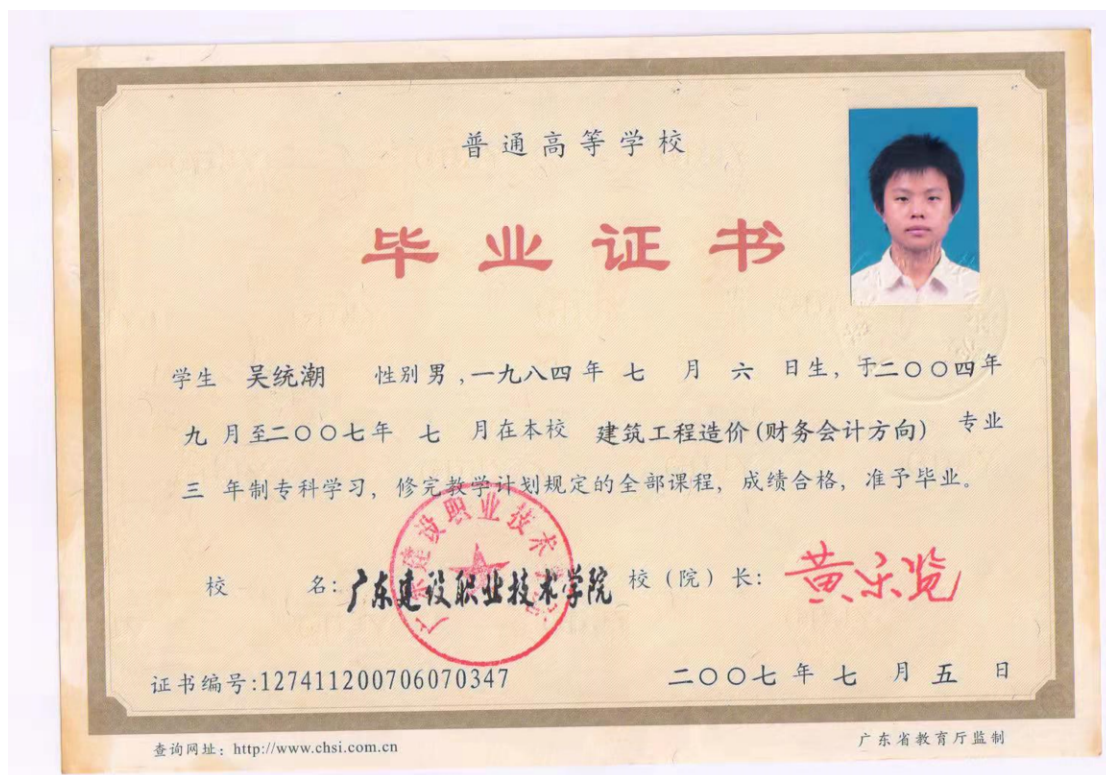 普通高等学校
毕业证书
学生 吴统潮 性别男,一九八四年 七 月 六 日生,于二〇〇四年
九 月至二〇〇七年 七 月在本校 建筑工程造价(财务会计方向) 专业
三 年制专科学习,修完教学计划规定的全部课程,成绩合格,准予毕业。
校 名:广东建设职业技术学院 校(院)长:黄乐览
广东建设职业技术学院
证书编号:127411200706070347 二〇〇七年 七 月 五 日
查询网址:http://www.chsi.com.cn 广东省教育厅监制